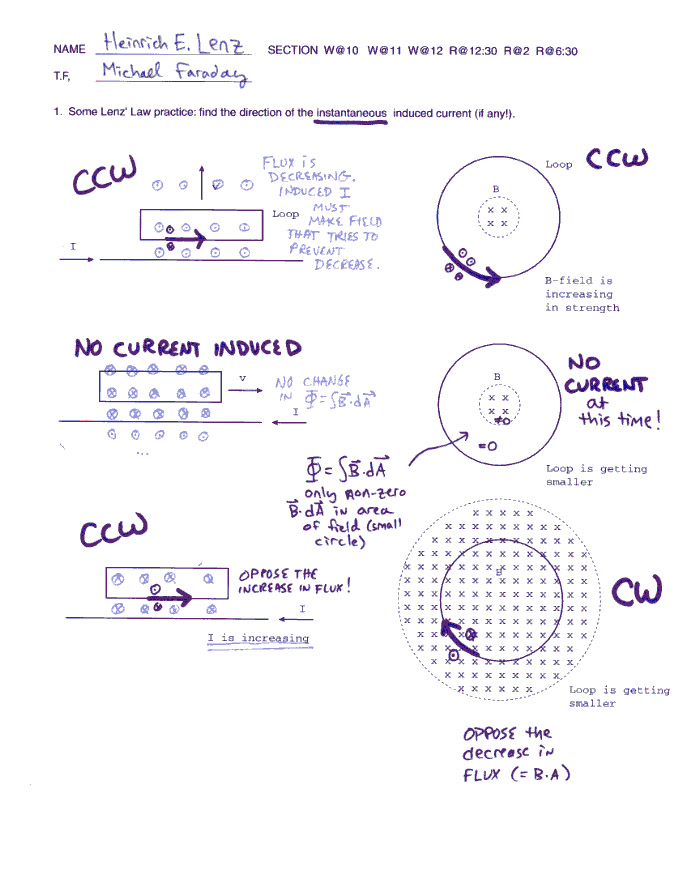 NAME Heinrich E. Lenz SECTION W@10 W@11 W@12 R@12:30 R@2 R@6:30
T.F, Michael Faraday
1. Some Lenz' Law practice: find the direction of the instantaneous induced current (if any!).
CCW
FLUX iS
DECREASING.
INDUCED I
MUST
MAKE FIELD
THAT TRIES TO
PREVENT
DECREASE.
Loop
I
Loop
CCW
B
x x
x x
B-field is
increasing
in strength
NO CURRENT INDUCED
v
NO CHANGE
IN Φ=∫B⃗·dA⃗
I
...
B
x x
x x
≠0
=0
NO
CURRENT
at
this time!
Loop is getting
smaller
Φ=∫B⃗·dA⃗
only non-zero
B⃗·dA⃗ in area
of field (small
circle)
CCW
OPPOSE THE
INCREASE IN FLUX!
I
I is increasing
B
CW
Loop is getting
smaller
OPPOSE the
decrease in
FLUX (= B·A)